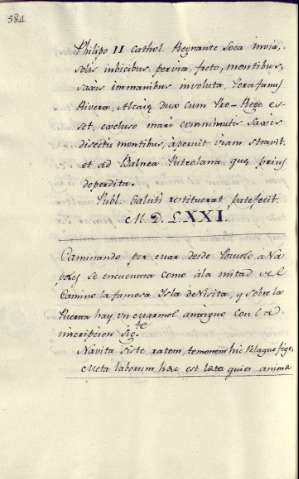 584
Philipo II Cathol. Regnante Loca invia,
solis indicibus pervia, freto, montibus,
saxis immanibus involuta, Perafanus
Rivera, Alcalę dux cum Pro-Rege es-
set, excluso mari comminutis saxis
disectis montibus, aperuit viam stravit
et ad Balnea Puteolana quę prius
deperdita.
Publ. Saluti restituerat patefecit
M. D. LXXI.
Caminando por esta desde Puzolo à Na-
poles se encuentra como à la mitad del
Camino la famosa Isla de Nisita, y sobre la
Puerta hay un marmol antiguo con la
inscripcion sig.te
Navita siste ratem, temonem hic velaque fige,
Meta laborum haec est laeta quies animae